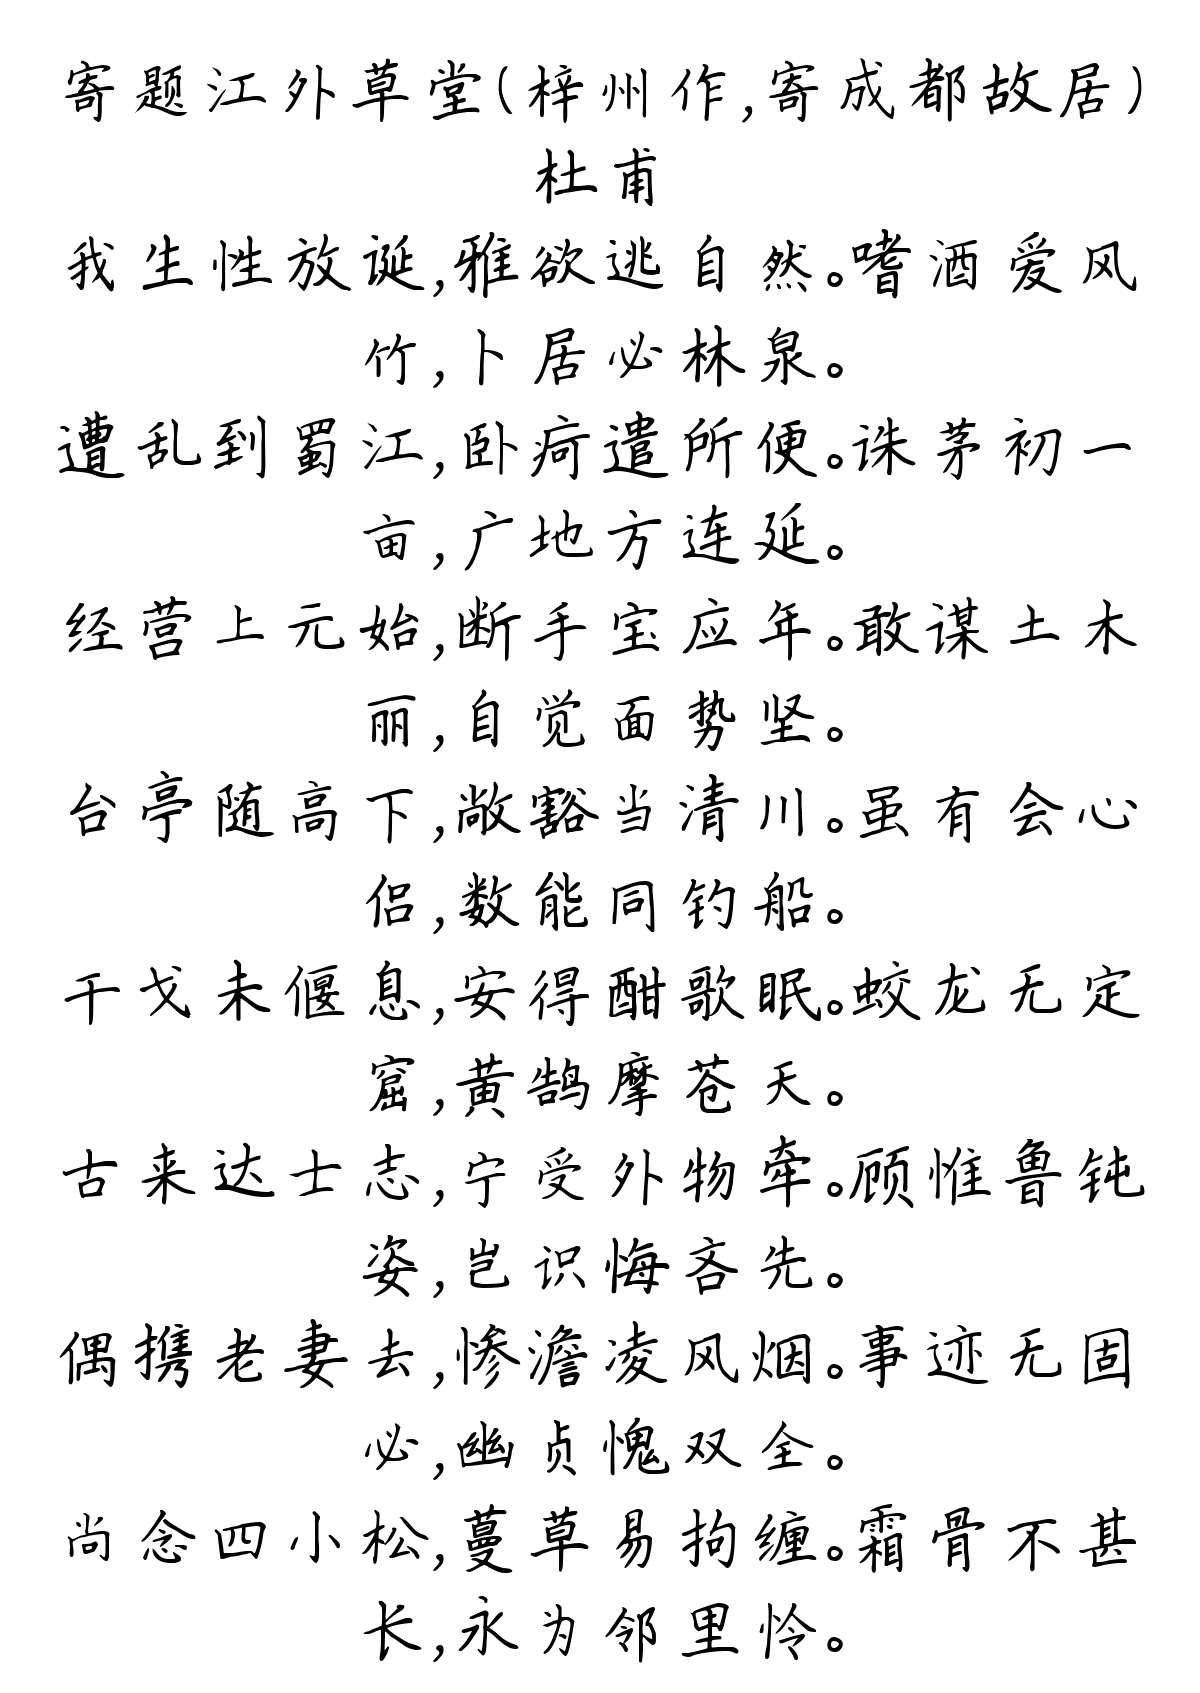 寄题江外草堂(梓州作,寄成都故居)
杜甫
我生性放诞,雅欲逃自然。嗜酒爱风
竹,卜居必林泉。
遭乱到蜀江,卧疴遣所便。诛茅初一
亩,广地方连延。
经营上元始,断手宝应年。敢谋土木
丽,自觉面势坚。
台亭随高下,敞豁当清川。虽有会心
侣,数能同钓船。
干戈未偃息,安得酣歌眠。蛟龙无定
窟,黄鹄摩苍天。
古来达士志,宁受外物牵。顾惟鲁钝
姿,岂识悔吝先。
偶携老妻去,惨澹凌风烟。事迹无固
必,幽贞愧双全。
尚念四小松,蔓草易拘缠。霜骨不甚
长,永为邻里怜。